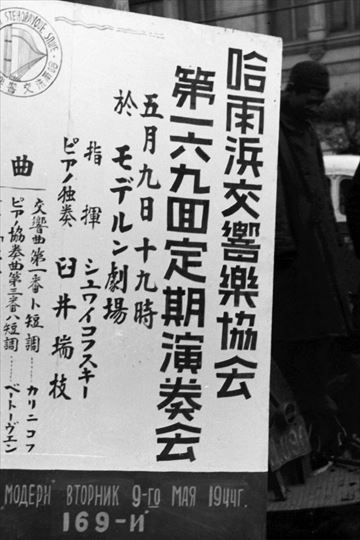 哈雨浜交響樂協会
第一六九回定期演奏会
五月九日十九時
於モデルン劇場
指揮 シュワイコフスキー
ピアノ独奏 臼井瑞枝
曲
交響曲第一番ト短調……カリニコフ
ピアノ協奏曲第三番ハ短調……ベートーヴェン
"МОДЕРН" ВТОРНИК 9-го МАЯ 1944г.
169-Й